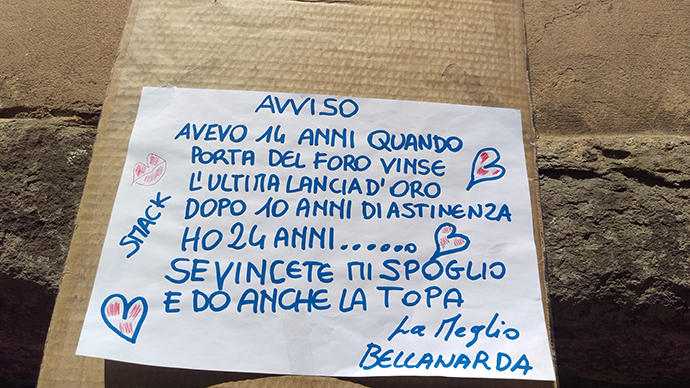 AVVISO
AVEVO 14 ANNI QUANDO
PORTA DEL FORO VINSE
L'ULTIMA LANCIA D'ORO
DOPO 10 ANNI DI ASTINENZA
HO 24 ANNI......
SE VINCETE MI SPOGLIO
E DO ANCHE LA TOPA
La Meglio
BELLANARDA
SMACK